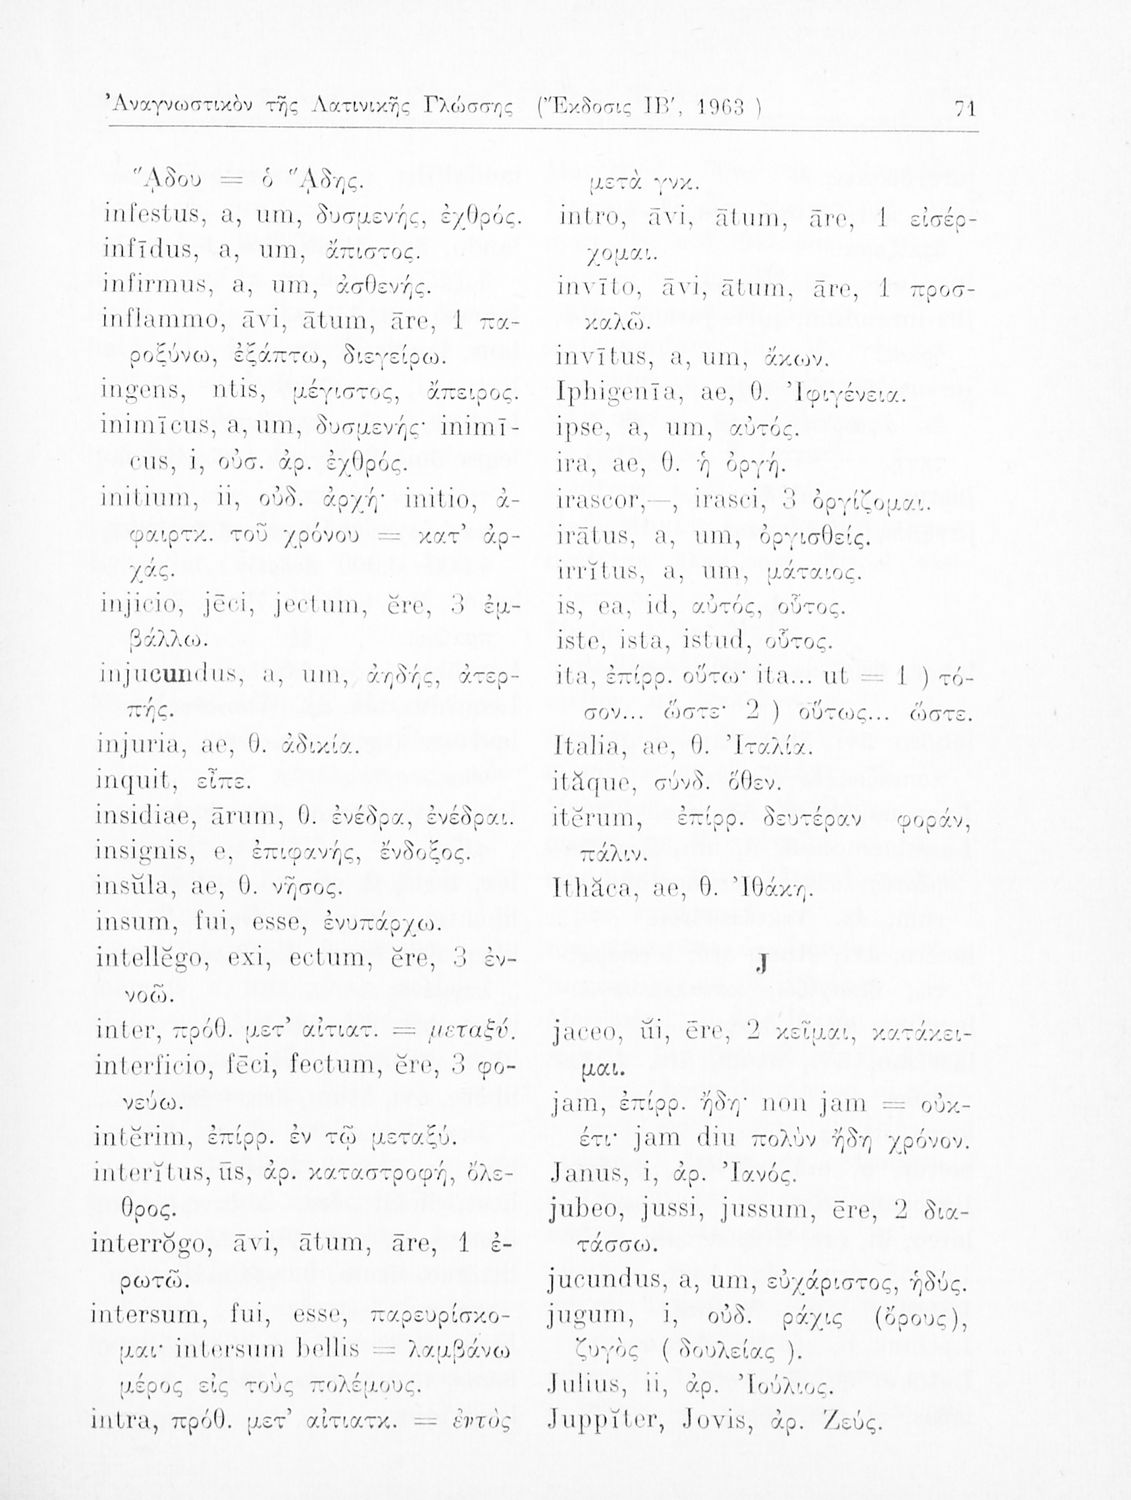 Ἀναγνωστικὸν τῆς Λατινικῆς Γλώσσης (Ἔκδοσις ΙΒ′, 1963 ) 71
Ἅδου = ὁ Ἅδης.
infestus, a, um, δυσμενής, ἐχθρός.
infīdus, a, um, ἄπιστος.
infirmus, a, um, ἀσθενής.
inflammo, āvi, ātum, āre, 1 πα-
ροξύνω, ἐξάπτω, διεγείρω.
ingens, ntis, μέγιστος, ἄπειρος.
inimīcus, a, um, δυσμενής· inimī-
cus, i, οὐσ. ἀρ. ἐχθρός.
initium, ii, οὐδ. ἀρχή· initio, ἀ-
φαιρτκ. τοῦ χρόνου = κατ’ ἀρ-
χάς.
injicio, jēci, jectum, ĕre, 3 ἐμ-
βάλλω.
injucundus, a, um, ἀηδής, ἀτερ-
πής.
injuria, ae, θ. ἀδικία.
inquit, εἶπε.
insidiae, ārum, θ. ἐνέδρα, ἐνέδραι.
insignis, e, ἐπιφανής, ἔνδοξος.
insŭla, ae, θ. νῆσος.
insum, fui, esse, ἐνυπάρχω.
intellĕgo, exi, ectum, ĕre, 3 ἐν-
νοῶ.
inter, πρόθ. μετ’ αἰτιατ. = μεταξύ.
interficio, fēci, fectum, ĕre, 3 φο-
νεύω.
intĕrim, ἐπίρρ. ἐν τῷ μεταξύ.
interĭtus, ūs, ἀρ. καταστροφή, ὄλε-
θρος.
interrŏgo, āvi, ātum, āre, 1 ἐ-
ρωτῶ.
intersum, fui, esse, παρευρίσκο-
μαι· intersum bellis = λαμβάνω
μέρος εἰς τοὺς πολέμους.
intra, πρόθ. μετ’ αἰτιατκ. = ἐντὸς
μετὰ γνκ.
intro, āvi, ātum, āre, 1 εἰσέρ-
χομαι.
invīto, āvi, ātum, āre, 1 προσ-
καλῶ.
invītus, a, um, ἄκων.
Iphigenīa, ae, θ. Ἰφιγένεια.
ipse, a, um, αὐτός.
ira, ae, θ. ἡ ὀργή.
irascor,—, irasci, 3 ὀργίζομαι.
irātus, a, um, ὀργισθείς.
irrĭtus, a, um, μάταιος.
is, ea, id, αὐτός, οὗτος.
iste, ista, istud, οὗτος.
ita, ἐπίρρ. οὕτω· ita... ut = 1 ) τό-
σον... ὥστε· 2 ) οὕτως... ὥστε.
Italia, ae, θ. Ἰταλία.
ităque, σύνδ. ὅθεν.
itĕrum, ἐπίρρ. δευτέραν φοράν,
πάλιν.
Ithăca, ae, θ. Ἰθάκη.
J
jaceo, ŭi, ēre, 2 κεῖμαι, κατάκει-
μαι.
jam, ἐπίρρ. ἤδη· non jam = οὐκ-
έτι· jam diu πολὺν ἤδη χρόνον.
Janus, i, ἀρ. Ἰανός.
jubeo, jussi, jussum, ēre, 2 δια-
τάσσω.
jucundus, a, um, εὐχάριστος, ἡδύς.
jugum, i, οὐδ. ράχις (ὄρους),
ζυγὸς ( δουλείας ).
Julius, ii, ἀρ. Ἰούλιος.
Juppĭter, Jovis, ἀρ. Ζεύς.